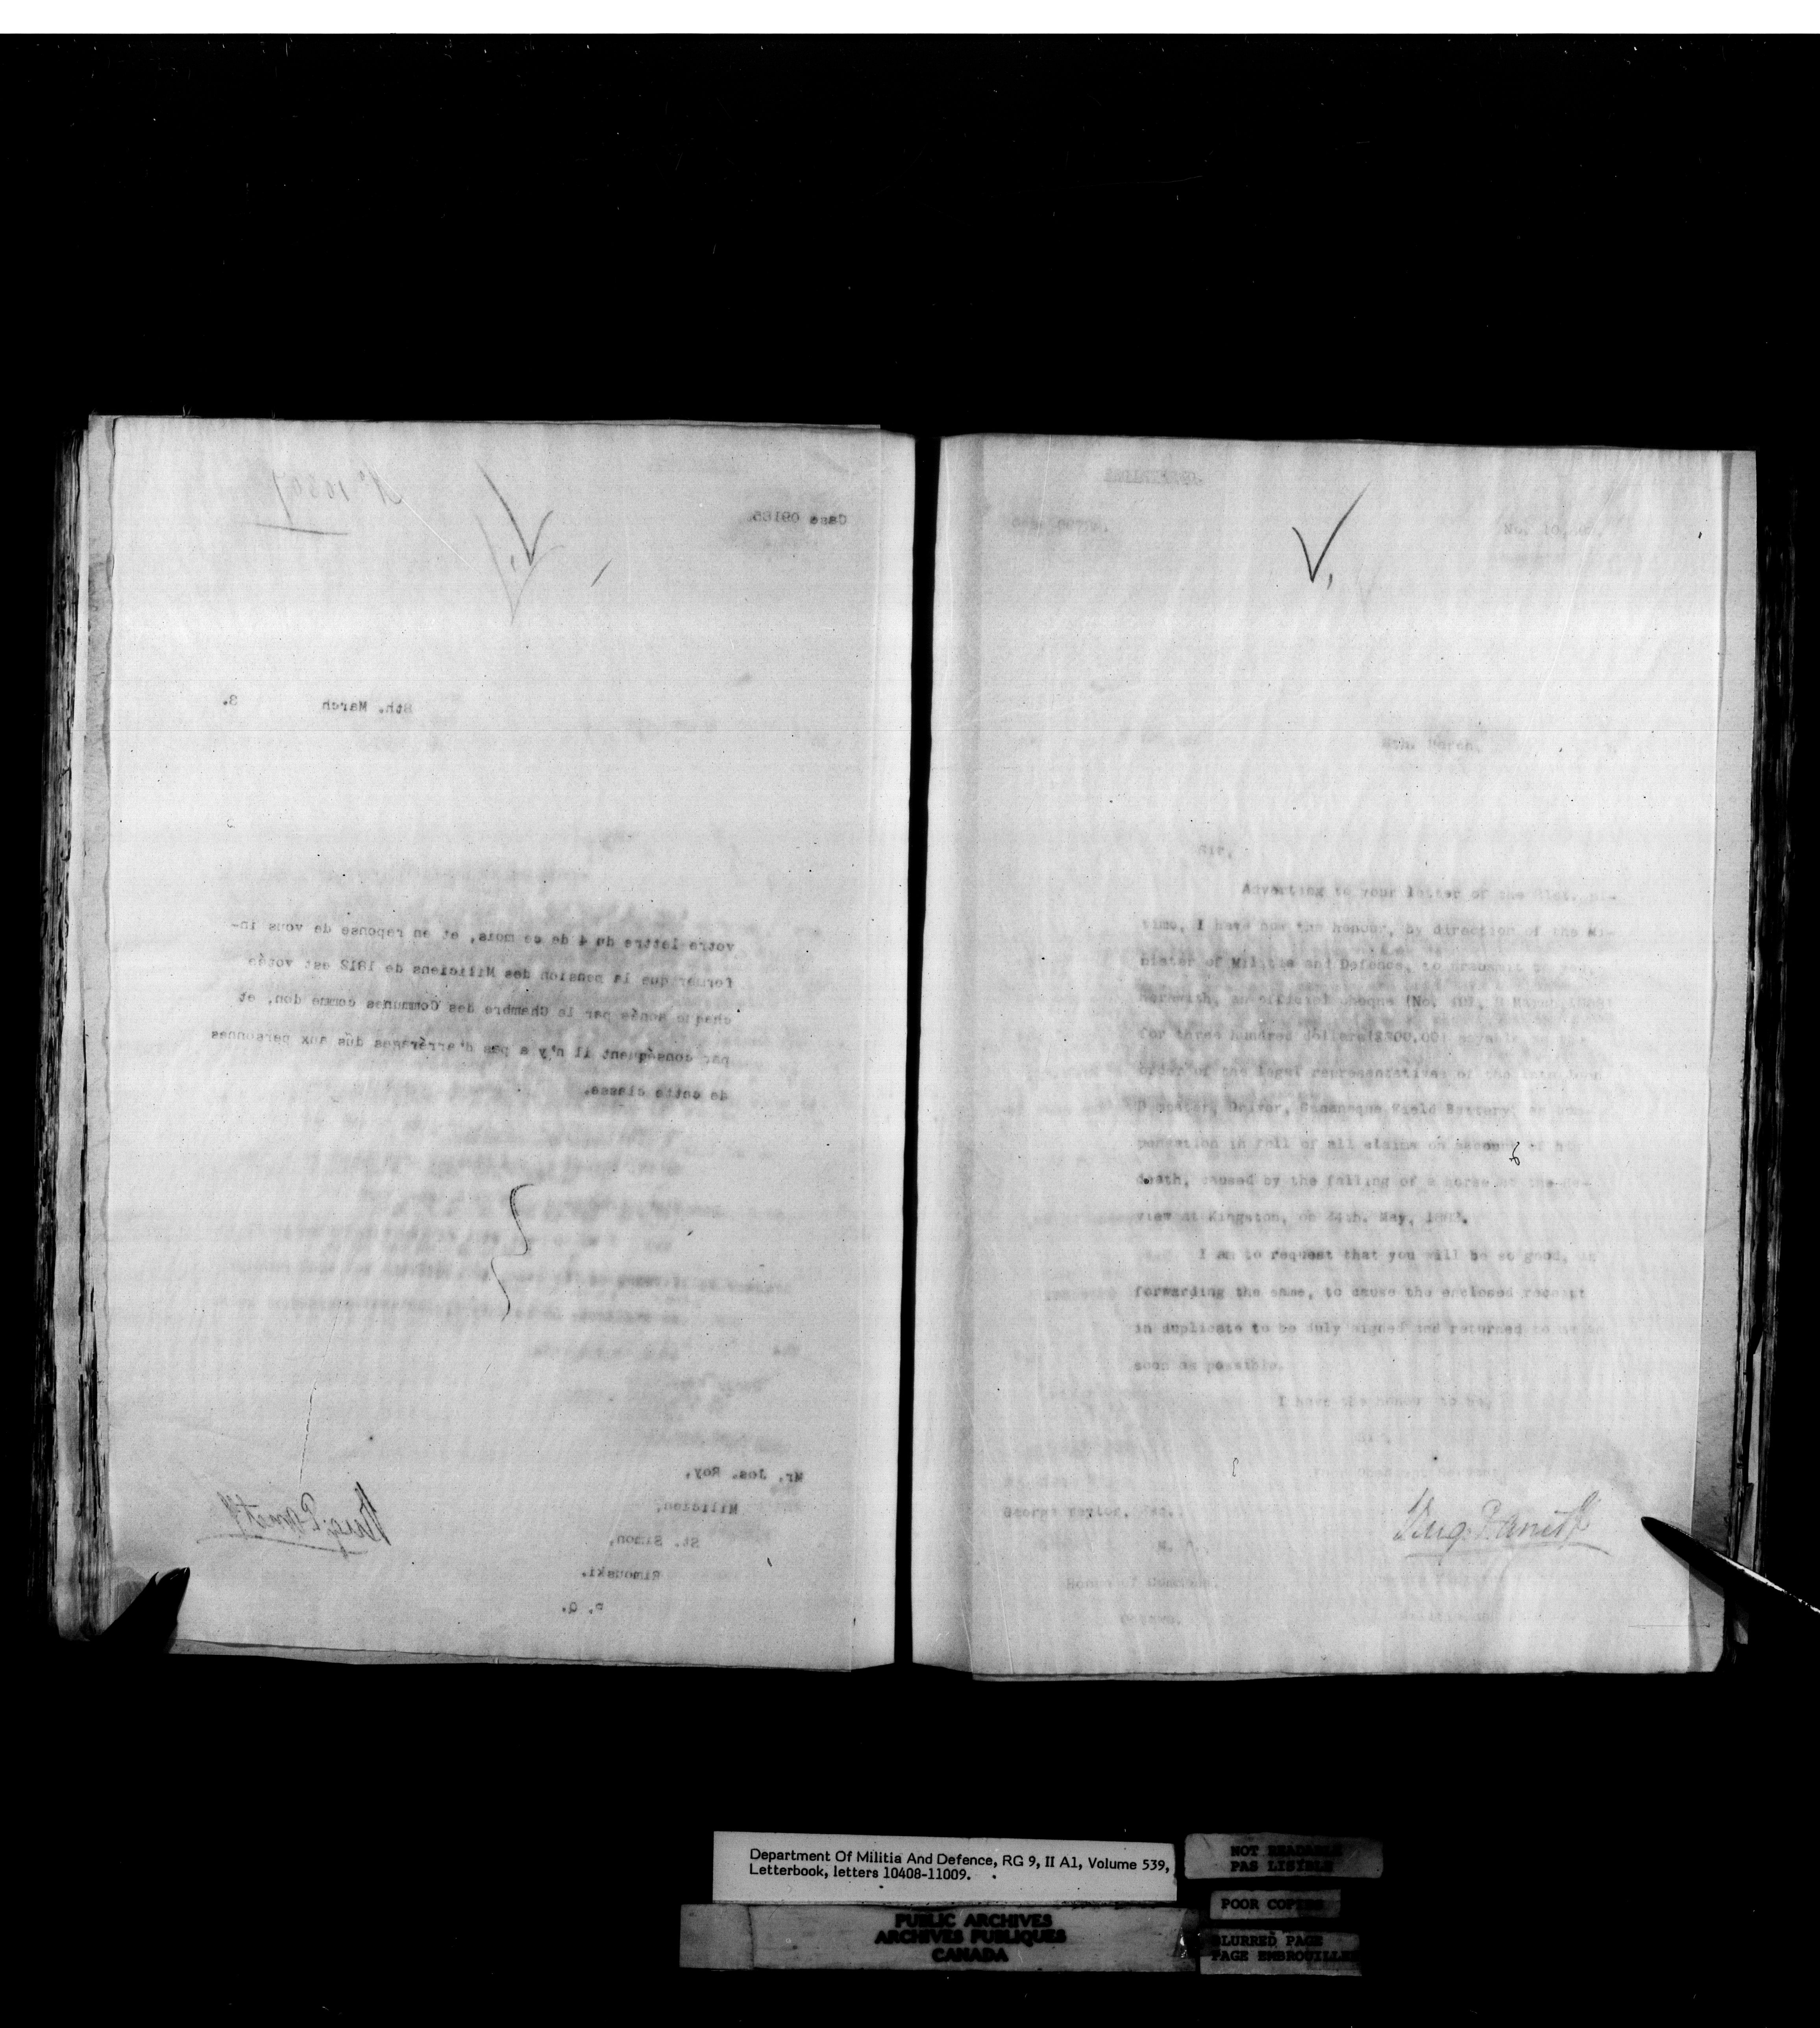 Case 09165.
8th. March 3.
votre lettre du 4 de ce mois, et en reponse de vous in-
former que la pension des Miliciens de 1812 est votée
chaque année par le Chambre des Communes comme don, et
par conséquent il n'y a pas d'arrérages dûs aux personnes
de cette classe.
Mr. Jos. Roy,
Milicien,
St. Simon,
Rimouski.
P. Q.
No. 10,
8th. March,
Sir,
Adverting to your letter of the 21st. ul-
timo, I have now the honour, by direction of the Mi-
nister of Militia and Defence, to transmit to you,
herewith, an official cheque (No.
for three hundred dollars ($300.00) payable to the
order of the legal representatives of the late
Driver, Gananoque Field Battery, as com-
pensation in full of all claims on account of his
death, caused by the falling of a horse at the Re-
view at Kingston, on 24th. May,
I am to request that you will be so good, in
forwarding the same, to cause the enclosed receipt
in duplicate to be duly signed and returned to me as
soon as possible.
I have the honour to be,
George Taylor, Esq.,
M. P.,
House of Commons,
Ottawa.
Department Of Militia And Defence, RG 9, II A1, Volume 539,
Letterbook, letters 10408-11009.
PUBLIC ARCHIVES
ARCHIVES PUBLIQUES
CANADA
NOT READABLE
PAS LISIBLE
POOR COPIES
BLURRED PAGE
PAGE EMBROUILLEE